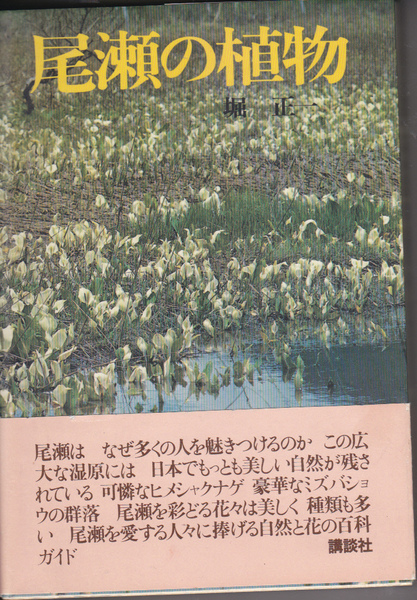 尾瀬の植物
堀 正一
尾瀬は なぜ多くの人を魅きつけるのか この広
大な湿原には 日本でもっとも美しい自然が残さ
れている 可憐なヒメシャクナゲ 豪華なミズバショ
ウの群落 尾瀬を彩どる花々は美しく 種類も多
い 尾瀬を愛する人々に捧げる自然と花の百科
ガイド
講談社